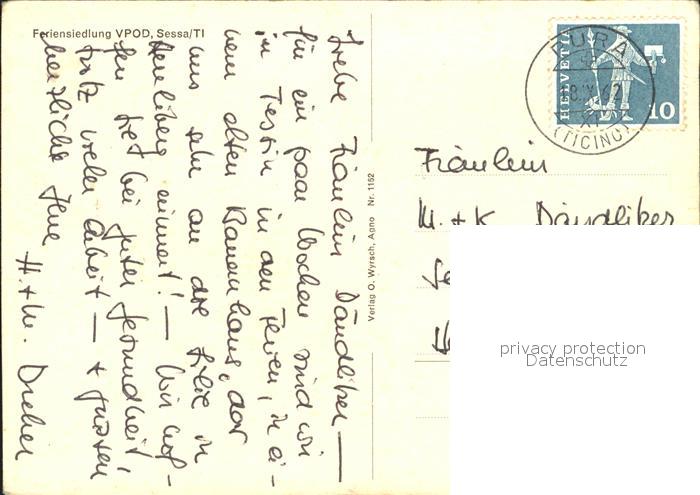 Feriensiedlung VPOD, Sessa/TI
Liebe Fräulein Dändliker —
für ein paar Wochen sind wir
im Tessin in den Ferien, in ei-
nem alten Bauernhaus, das
uns sehr an die in
erinnert! — Wir hof-
fen bei guter Gesundheit,
trotz vieler Arbeit — +
herzliche Ihre H. + W. Dreher
Verlag O. Wyrsch, Agno Nr. 1152
HELVETIA
10
PURA
(TICINO)
Fräulein
M. + K. Dändliker
privacy protection
Datenschutz